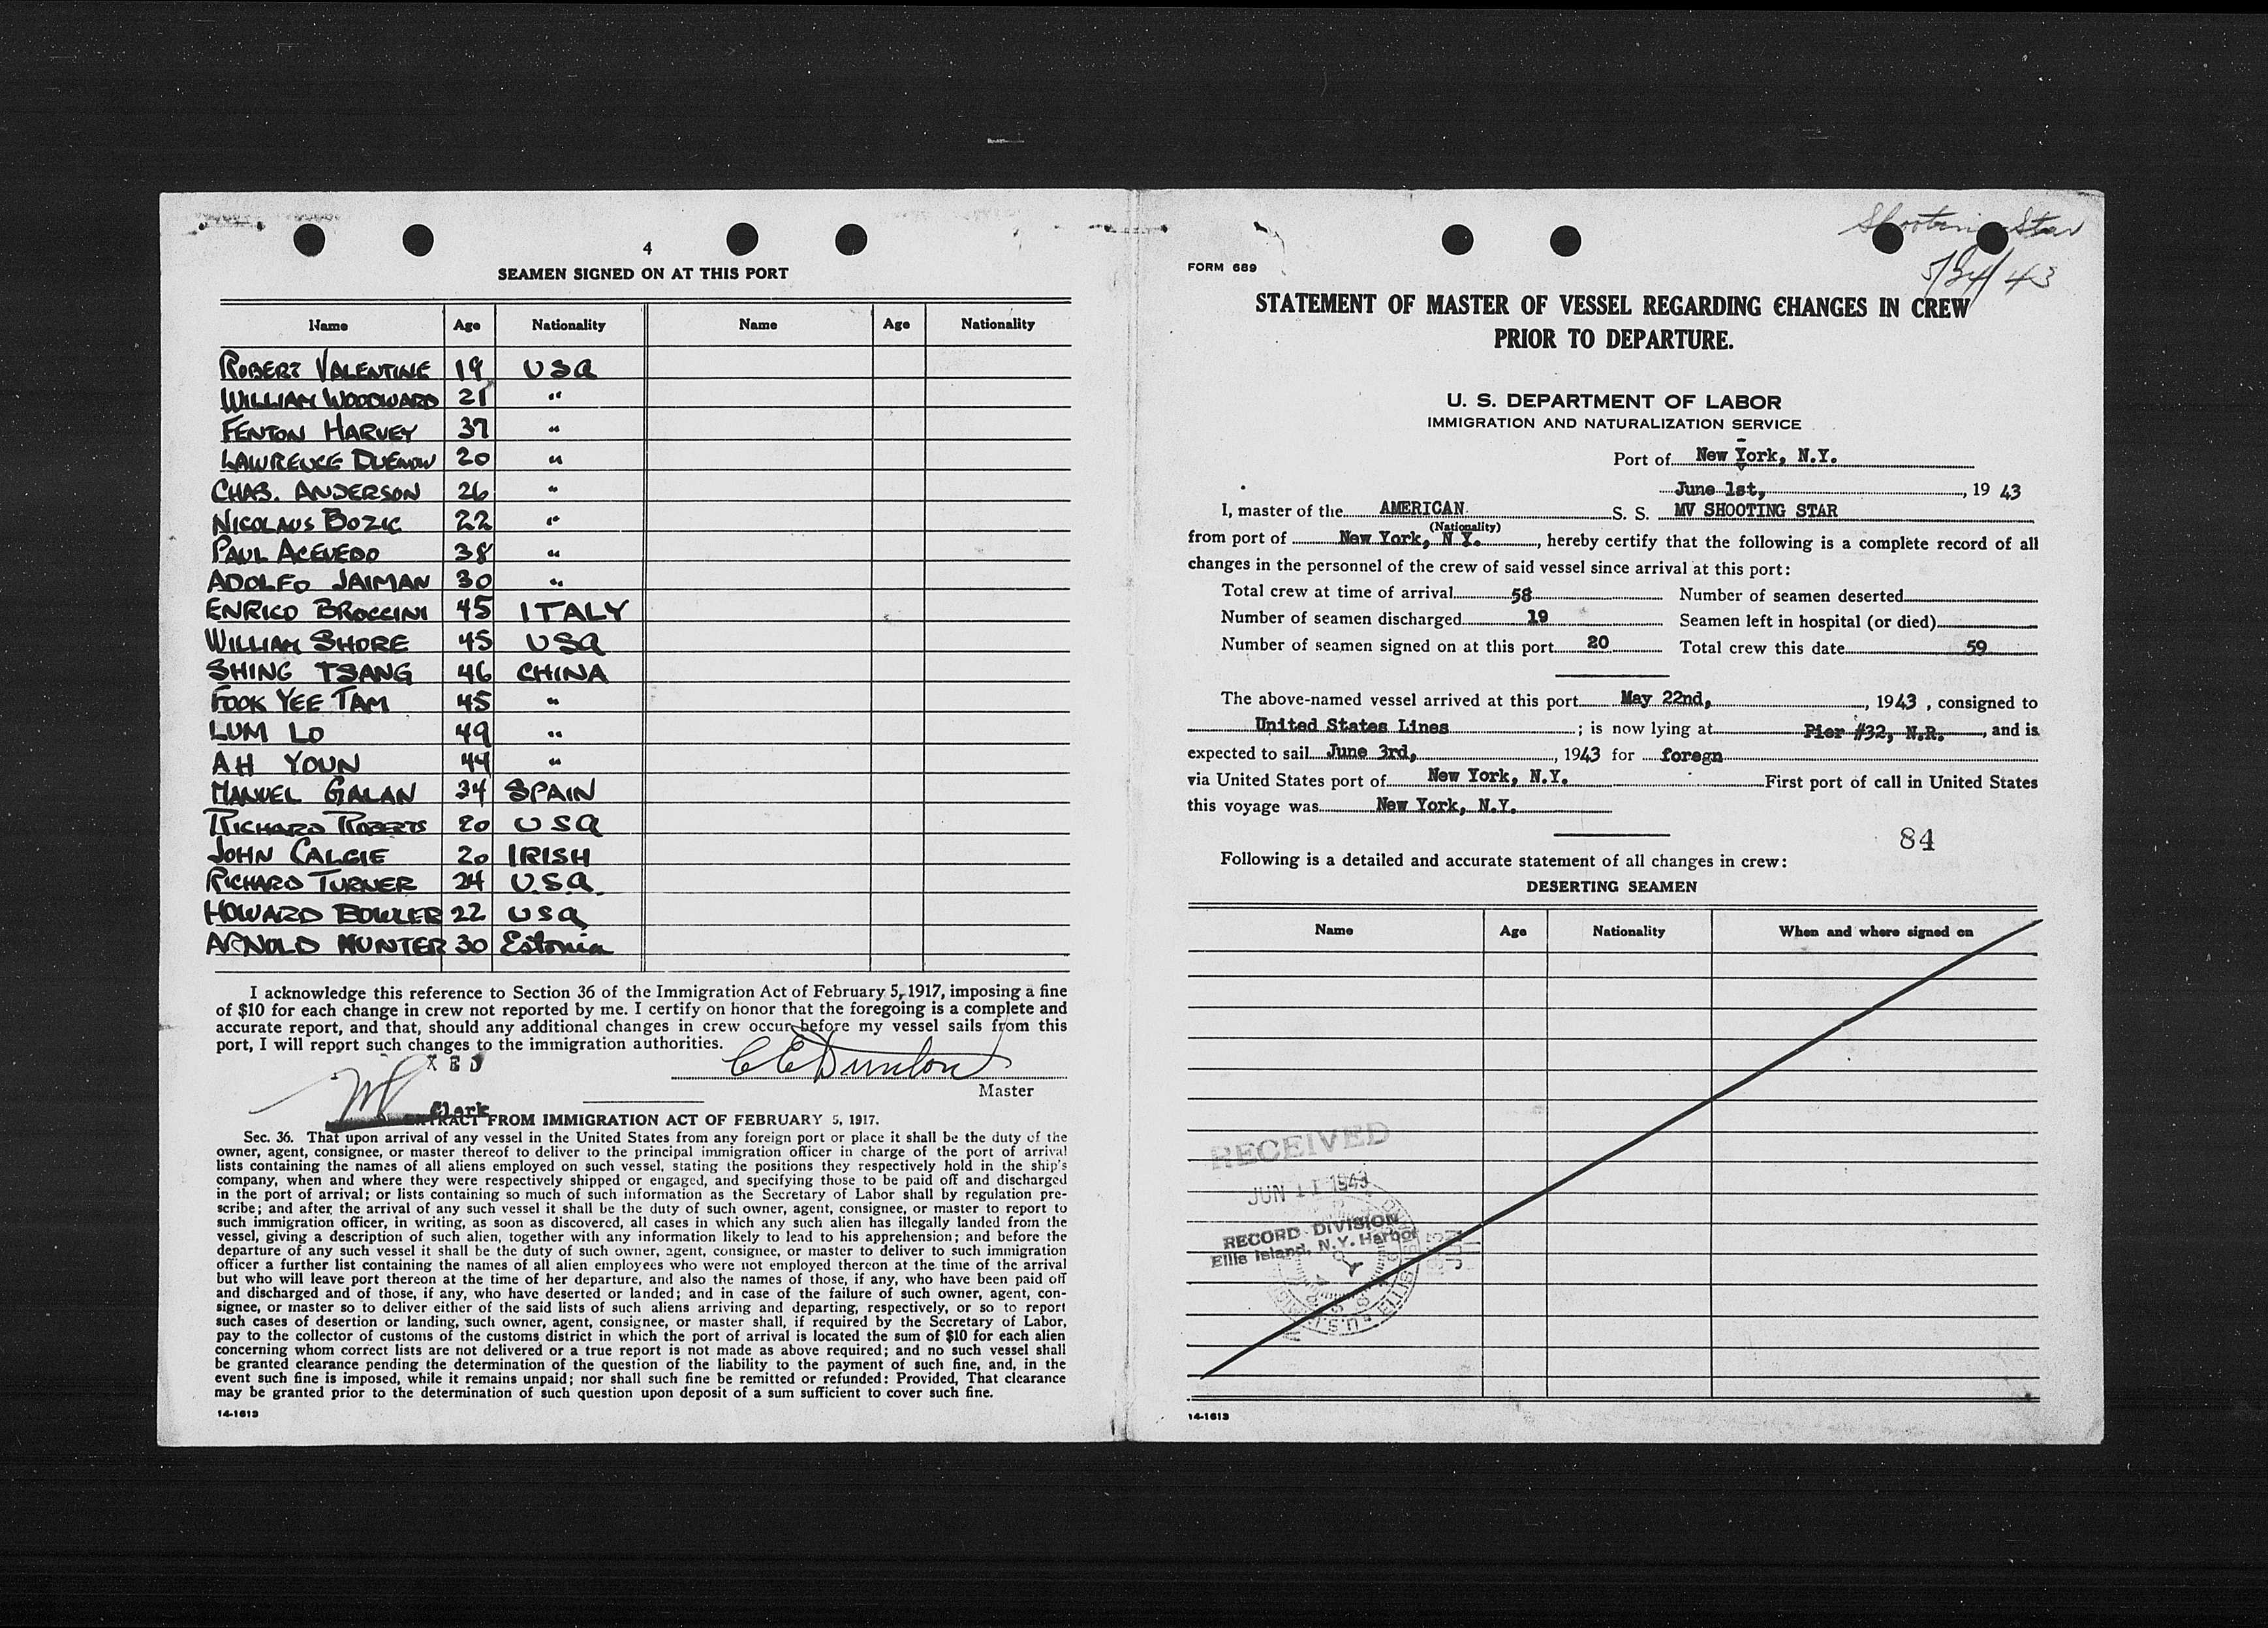 4
SEAMEN SIGNED ON AT THIS PORT
Name Age Nationality Name Age Nationality
ROBERT VALENTINE 19 USA
WILLIAM WOODWARD 21 "
FENTON HARVEY 37 "
LAWRENCE 20 "
CHAS. ANDERSON 26 "
NICOLAUS BOZIC 22 "
PAUL ACEVEDO 38 "
ADOLFO JAIMAN 30 "
ENRICO BROCCINI 45 ITALY
WILLIAM SHORE 45 USA
SHING TSANG 46 CHINA
FOOK YEE TAM 45 "
LUM LO 49 "
AH YOUN 44 "
MANUEL GALAN 34 SPAIN
RICHARD ROBERTS 20 USA
JOHN CALGIE 20 IRISH
RICHARD TURNER 24 U.S.A.
HOWARD BOWLER 22 USA
ARNOLD HUNTER 30 Estonia
I acknowledge this reference to Section 36 of the Immigration Act of February 5, 1917, imposing a fine
of $10 for each change in crew not reported by me. I certify on honor that the foregoing is a complete and
accurate report, and that, should any additional changes in crew occur before my vessel sails from this
port, I will report such changes to the immigration authorities.
XED
Master
Clerk
FROM IMMIGRATION ACT OF FEBRUARY 5, 1917.
Sec. 36. That upon arrival of any vessel in the United States from any foreign port or place it shall be the duty of the
owner, agent, consignee, or master thereof to deliver to the principal immigration officer in charge of the port of arrival
lists containing the names of all aliens employed on such vessel, stating the positions they respectively hold in the ship's
company, when and where they were respectively shipped or engaged, and specifying those to be paid off and discharged
in the port of arrival; or lists containing so much of such information as the Secretary of Labor shall by regulation pre-
scribe; and after the arrival of any such vessel it shall be the duty of such owner, agent, consignee, or master to report to
such immigration officer, in writing, as soon as discovered, all cases in which any such alien has illegally landed from the
vessel, giving a description of such alien, together with any information likely to lead to his apprehension; and before the
departure of any such vessel it shall be the duty of such owner, agent, consignee, or master to deliver to such immigration
officer a further list containing the names of all alien employees who were not employed thereon at the time of the arrival
but who will leave port thereon at the time of her departure, and also the names of those, if any, who have been paid off
and discharged and of those, if any, who have deserted or landed; and in case of the failure of such owner, agent, con-
signee, or master so to deliver either of the said lists of such aliens arriving and departing, respectively, or so to report
such cases of desertion or landing, such owner, agent, consignee, or master shall, if required by the Secretary of Labor,
pay to the collector of customs of the customs district in which the port of arrival is located the sum of $10 for each alien
concerning whom correct lists are not delivered or a true report is not made as above required; and no such vessel shall
be granted clearance pending the determination of the question of the liability to the payment of such fine, and, in the
event such fine is imposed, while it remains unpaid; nor shall such fine be remitted or refunded: Provided, That clearance
may be granted prior to the determination of such question upon deposit of a sum sufficient to cover such fine.
14-1613
Shooting Star
5/24/43
FORM 689
STATEMENT OF MASTER OF VESSEL REGARDING CHANGES IN CREW
PRIOR TO DEPARTURE.
U. S. DEPARTMENT OF LABOR
IMMIGRATION AND NATURALIZATION SERVICE
Port of New York, N.Y.
June 1st, , 19 43
I, master of the AMERICAN S. S. MV SHOOTING STAR
(Nationality)
from port of New York, N Y. , hereby certify that the following is a complete record of all
changes in the personnel of the crew of said vessel since arrival at this port:
Total crew at time of arrival 58 Number of seamen deserted
Number of seamen discharged 19 Seamen left in hospital (or died)
Number of seamen signed on at this port 20 Total crew this date 59
The above-named vessel arrived at this port May 22nd, , 1943 , consigned to
United States Lines ; is now lying at Pier #32, N.R. , and is
expected to sail June 3rd, , 1943 for foregn
via United States port of New York, N.Y. First port of call in United States
this voyage was New York, N.Y.
84
Following is a detailed and accurate statement of all changes in crew:
DESERTING SEAMEN
Name Age Nationality When and where signed on
RECEIVED
JUN 11 1943
RECORD DIVISION
Ellis Island, N.Y. Harbor
14-1613